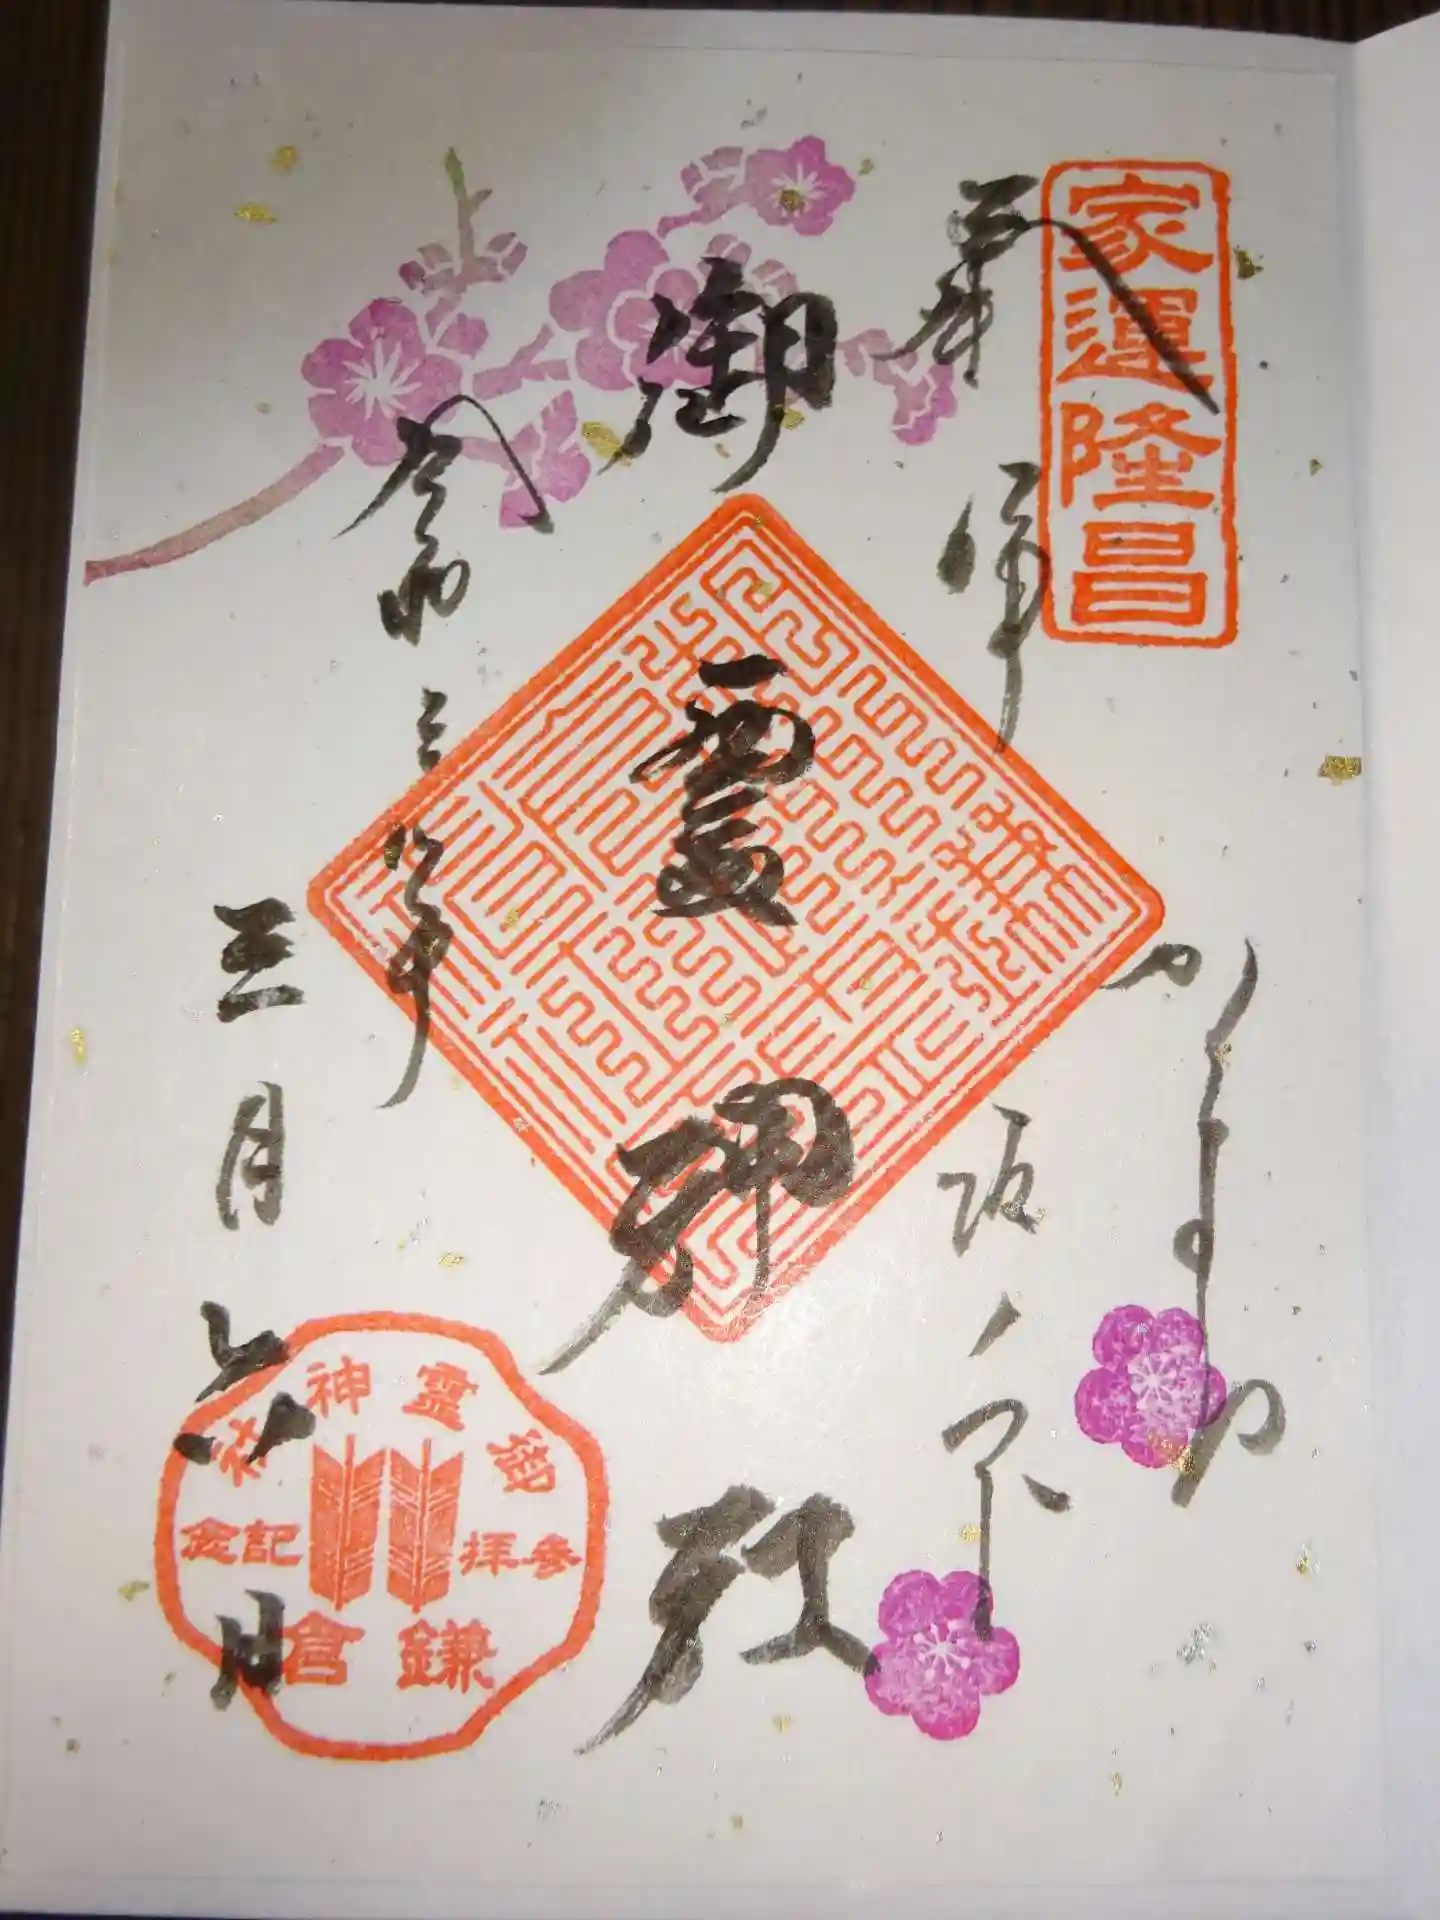 家運隆昌
奉拝
かまくら
坂ノ下
御靈神社
令和三年
三月六日
御靈神社
参拝記念
鎌倉